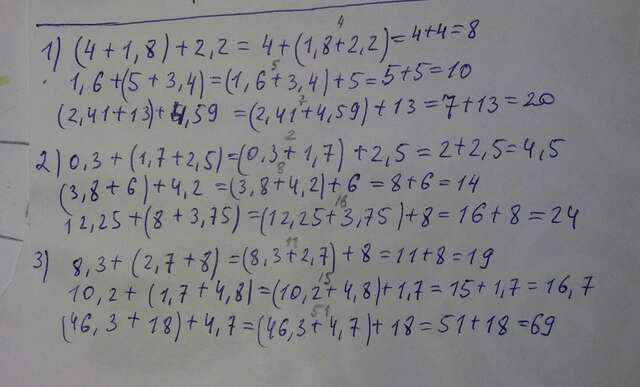 4
1) (4 + 1,8) + 2,2 = 4 + (1,8 + 2,2) = 4 + 4 = 8
5
1,6 + (5 + 3,4) = (1,6 + 3,4) + 5 = 5 + 5 = 10
7
(2,41 + 13) + 4,59 = (2,41 + 4,59) + 13 = 7 + 13 = 20
2
2) 0,3 + (1,7 + 2,5) = (0,3 + 1,7) + 2,5 = 2 + 2,5 = 4,5
8
(3,8 + 6) + 4,2 = (3,8 + 4,2) + 6 = 8 + 6 = 14
16
12,25 + (8 + 3,75) = (12,25 + 3,75) + 8 = 16 + 8 = 24
11
3) 8,3 + (2,7 + 8) = (8,3 + 2,7) + 8 = 11 + 8 = 19
15
10,2 + (1,7 + 4,8) = (10,2 + 4,8) + 1,7 = 15 + 1,7 = 16,7
51
(46,3 + 18) + 4,7 = (46,3 + 4,7) + 18 = 51 + 18 = 69